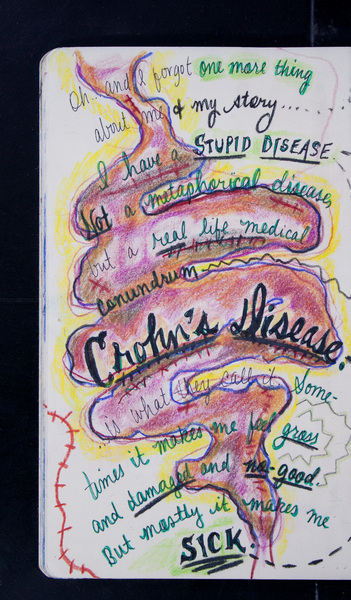 Oh... and I forgot one more thing
about me & my story....
I have a STUPID DISEASE
Not a metaphorical disease,
but a real life medical
conundrum
Crohn's Disease.
...is what they call it. Some-
times it makes me feel gross
and damaged and no-good.
But mostly it makes me
SICK.